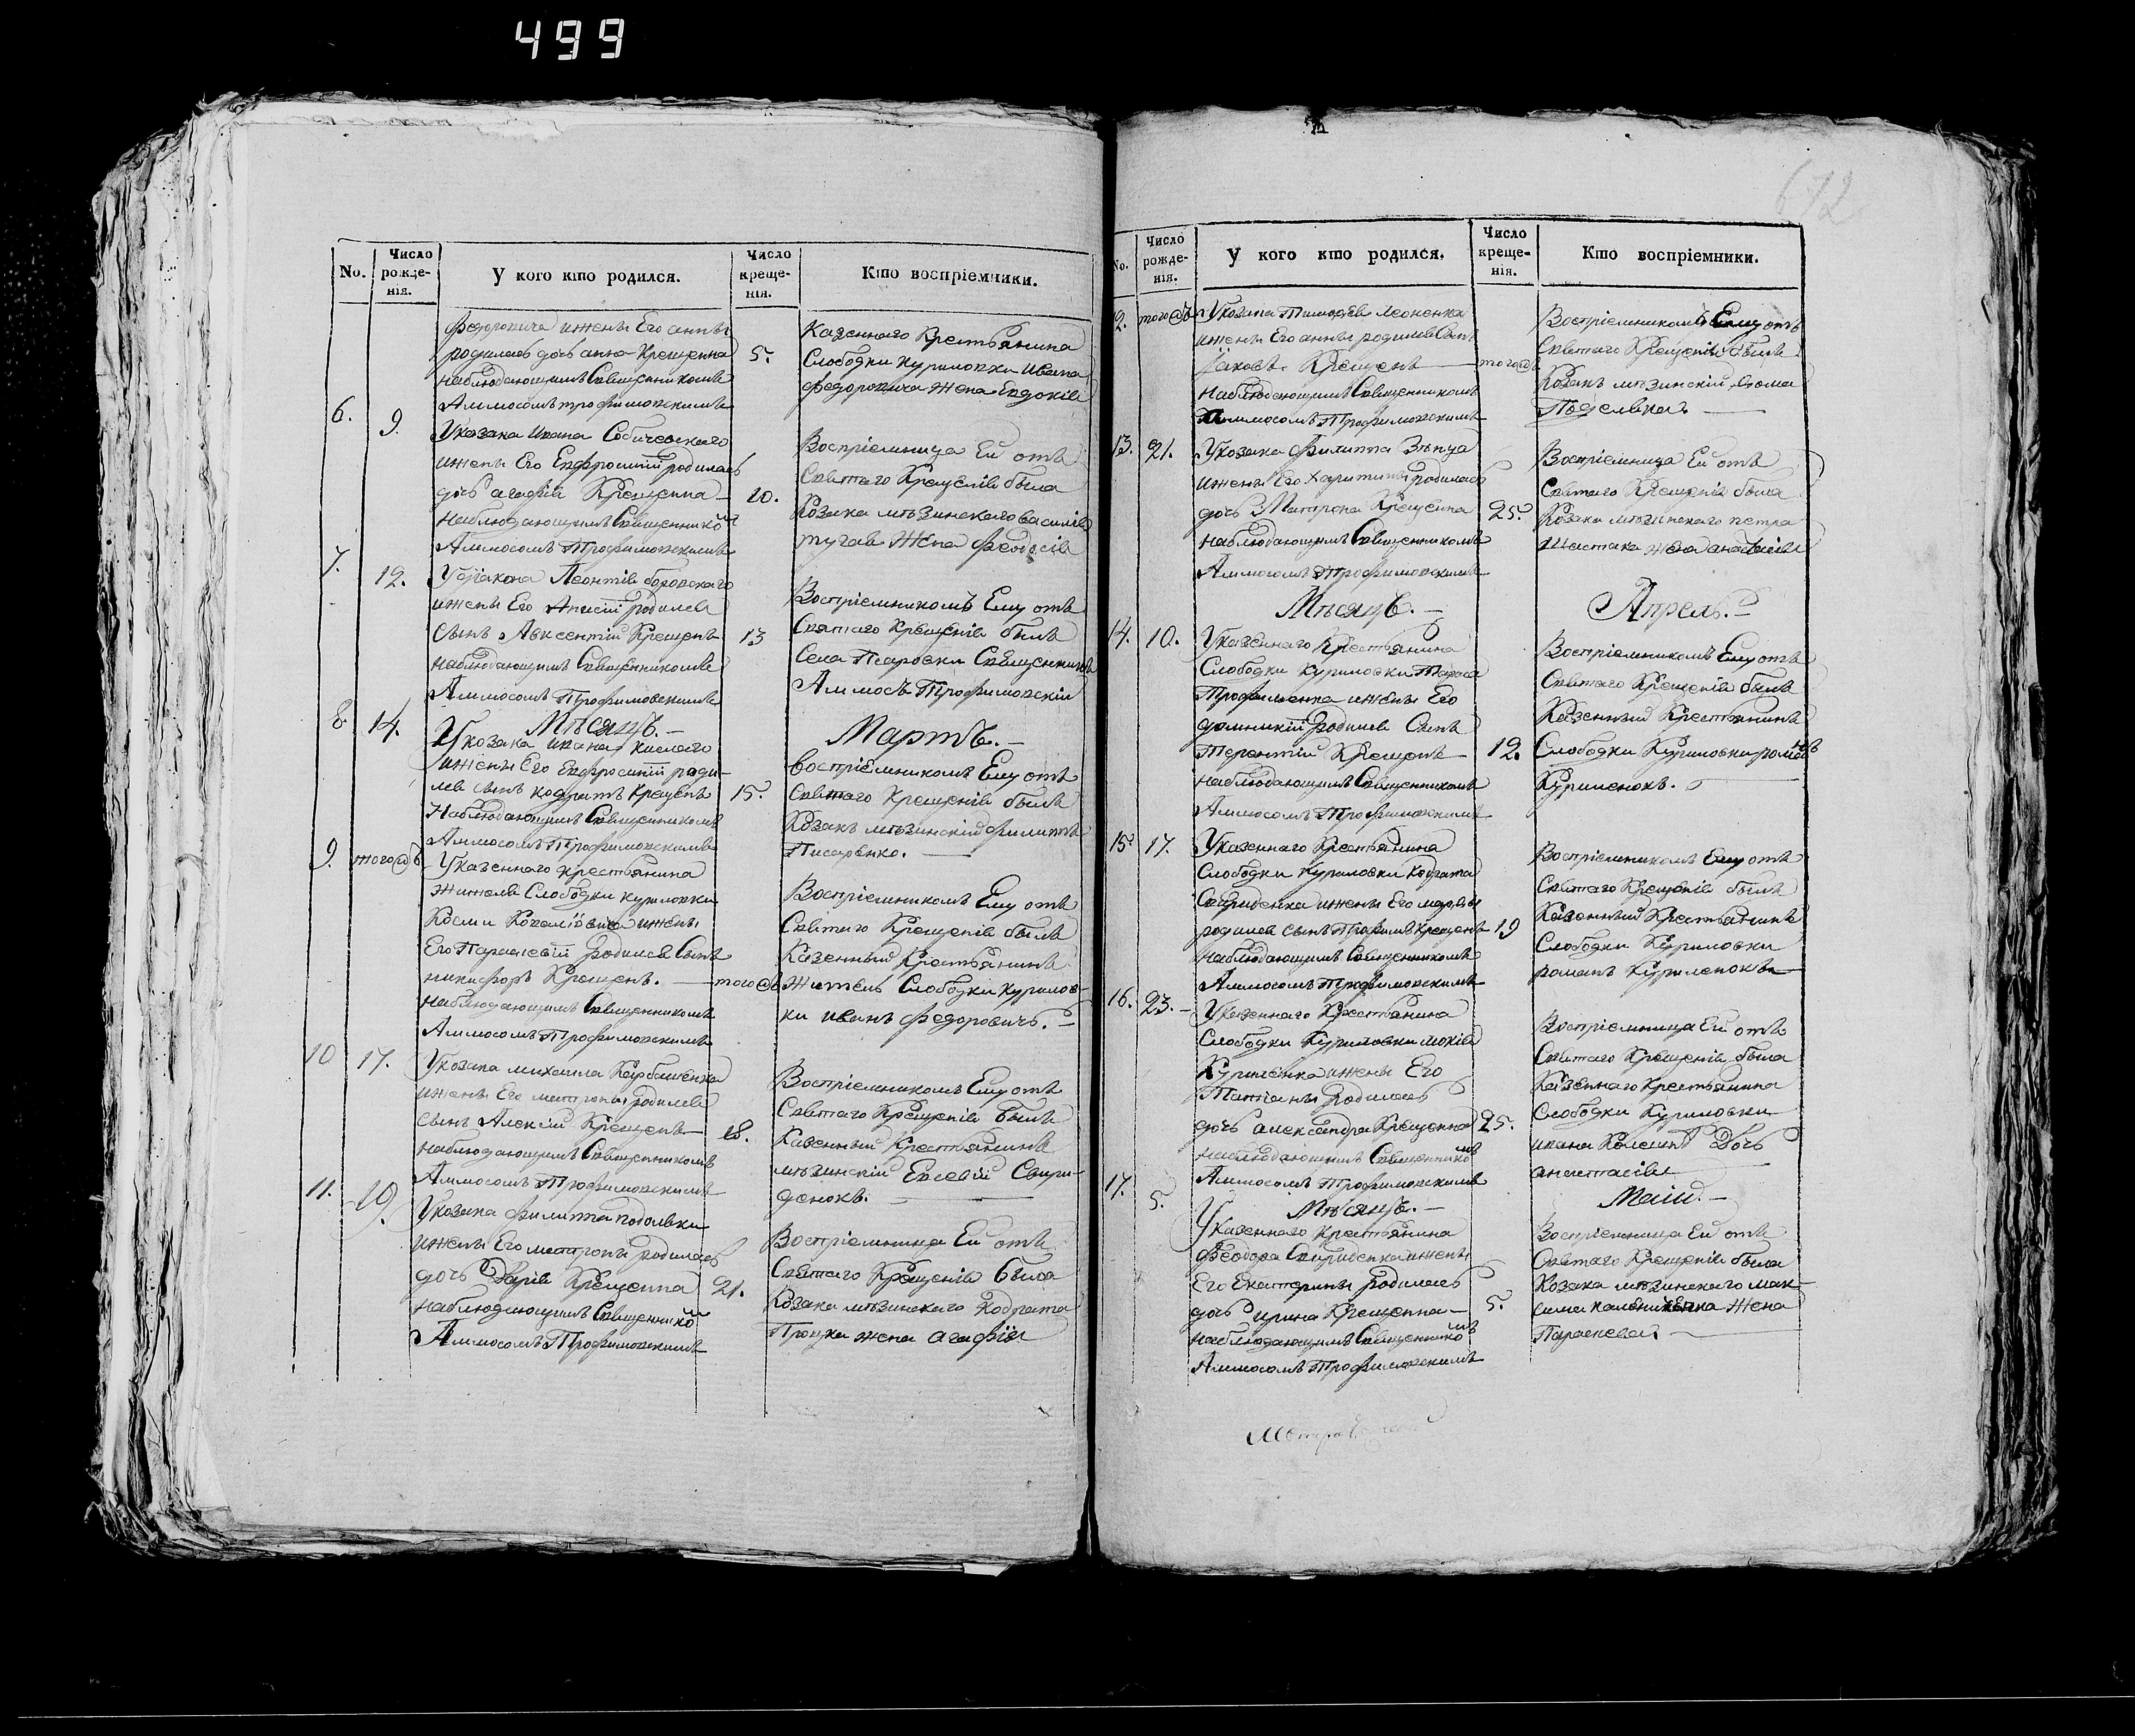 499
672
No.
Число рожде-нія.
У кого кто родился.
Число креще-нія.
Кто воспріемники.
Федоровича ижены Его анны
родилась дочь анна Крещенна
5.
наблюдающимъ Священникомъ
Аммосомъ трофимовскимъ
Казенного Крестьянина
Слободки Куриловки Ивана
федоровича жена Евдокія
6.
9.
Указака Ивана Собичевскаго
ижены Его Евфросиніи родилась
дочь агафія Крещенна
20.
наблюдающимъ Священникомъ
Аммосомъ Трофимовскимъ
Воспріемница Ей отъ
Святаго Крещенія была
Козака мѣзинскаго василія
тугая Жена Феодосія
7.
12.
Удіакона Леонтія боровскаго
ижены Его Анисіи родился
Сынъ Авксентій Крещенъ
13
наблюдающимъ Священникомъ
Аммосомъ Трофимовскимъ
Воспріемникомъ Ему отъ
Святаго Крещенія былъ
Села Псаровки Священникъ
Аммосъ Трофимовскій
Мѣсяцъ.
Мартъ.
8
14.
Укозака ивана кислого
ижены Его Евфросиніи роди-
лся сынъ кодратъ Крещенъ
15.
Наблюдающимъ Священникомъ
Аммосомъ Трофимовскимъ
воспріемникомъ Ему отъ
Святаго Крещенія былъ
Козакъ мѣзинскій филиппъ
Писаренко.
9.
тогожъ
Указенного крестьянина
Жителя Слободки куриловки
Космы ижены
Его Параскевіи родился Сынъ
никифоръ Крещенъ.
тогожъ
наблюдающимъ Священникомъ
Аммосомъ Трофимовскимъ
Воспріемникомъ Ему отъ
Святаго Крещенія былъ
Казенный Крестьянинъ
Житель Слободки Курилов-
ки иванъ Федоровичъ.
10
17.
Укозака михаила Карбашенка
ижены Его матроны родился
сынъ Алексій Крещенъ
18.
наблюдающимъ Священникомъ
Аммосомъ Трофимовскимъ
Воспріемникомъ Ему отъ
Святаго Крещенія былъ
Казенный Крестьянинъ
мѣзинскій Евсевій Свири-
денокъ.
11.
19.
Укозака филиппа подоляки
ижены Его матроны родилась
дочь Дарія Крещенна
21.
наблюдающимъ Священникомъ
Аммосомъ Трофимовскимъ
Воспріемница Ей отъ
Святаго Крещенія была
Козака мѣзинскаго Кодрата
Процка жена агафія
No.
Число рожде-нія.
У кого кто родился.
Число креще-нія.
Кто воспріемники.
12.
тогожъ
Укозака Тимофея Леоненка
ижены Его анны родился Сынъ
Іаковъ Крещенъ
тогожъ
наблюдающимъ Священникомъ
Аммосомъ Трофимовскимъ
Воспріемникомъ Ему отъ
Святаго Крещенія былъ
Козакъ мѣзинскій Фома
13.
21.
Укозака Филиппа Зѣнца
ижены Его Харитины родилась
дочь Матрона Крещенна
25.
наблюдающимъ Священникомъ
Аммосомъ Трофимовскимъ
Воспріемница Ей отъ
Святаго Крещенія была
Козака мѣзинскаго петра
Шестака жена анастасія
Мѣсяцъ.
Апрель.
14.
10.
Указенного Крестьянина
Слободки куриловки Тараса
Трофименка ижены Его
домникіи родился Сынъ
Терентій Крещенъ
12.
наблюдающимъ Священникомъ
Аммосомъ Трофимовскимъ
Воспріемникомъ Ему отъ
Святаго Крещенія былъ
Казенный Крестьянинъ
Слободки Куриловки романъ
Куриленокъ.
15.
17.
Указенного Крестьянина
Слободки Куриловки Кодрата
Свириденка ижены Его марфы
родился сынъ Трофимъ Крещенъ
19
наблюдающимъ Священникомъ
Аммосомъ Трофимовскимъ
Воспріемникомъ Ему отъ
Святаго Крещенія былъ
Казенный Крестьянинъ
Слободки Куриловки
романъ Куриленокъ
16.
23.
Указенного Крестьянина
Слободки Куриловки мокія
Куриленка ижены Его
Татіаны родилась
дочь александра Крещенна
25.
наблюдающимъ Священникомъ
Аммосомъ Трофимовскимъ
Воспріемница Ей отъ
Святаго Крещенія была
Казенного Крестьянина
Слободки Куриловки
ивана Дочь
анастасія
Мѣсяцъ.
Маій.
17.
5.
Указенного крестьянина
Феодора Свириденка ижены
Его Екатерины родилась
дочь ирина Крещенна
5.
наблюдающимъ Священникомъ
Аммосомъ Трофимовскимъ
Воспріемница Ей отъ
Святаго Крещенія была
Козака мѣзинскаго мак-
сима Жена
Параскевая